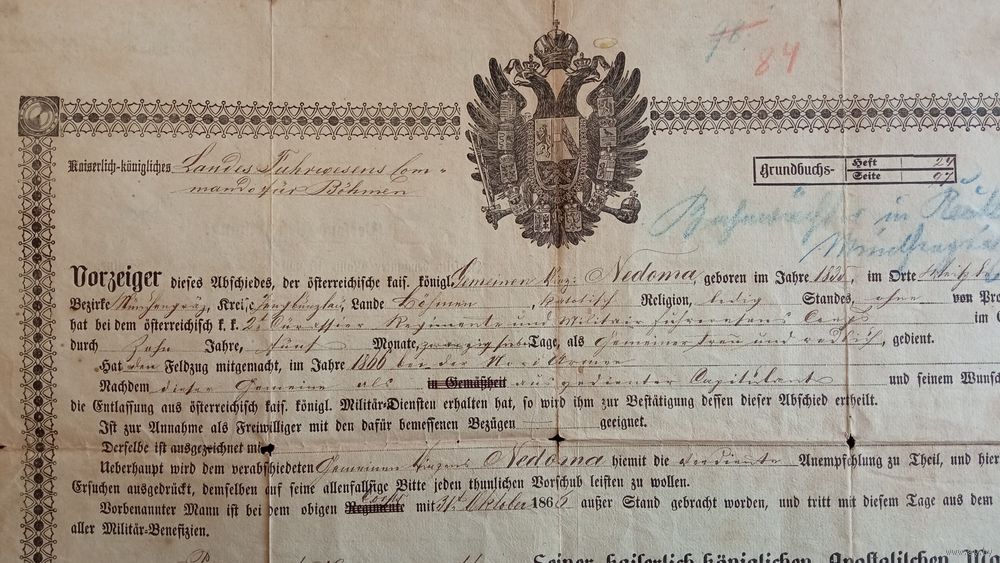 84
Kaiserlich-königliches Landes Fuhrwesens Com-
mando für Böhmen
Grundbuchs- Heft 24
Seite 97
Bahnwächter in
Vorzeiger dieses Abschiedes, der österreichische kais. königl. Gemeinen Nedoma, geboren im Jahre im Orte
Bezirke Münchengrätz, Kreise Jungbunzlau, Lande Böhmen, katolisch Religion, ledig Standes, ohne von
hat bei dem österreichisch k. k. 2. Cürassier Regimente und Militair fuhrwesens Corps im
durch Zehn Jahre, fünf Monate, Tage, als Gemeiner treu und redlich, gedient.
Hat den Feldzug mitgemacht, im Jahre 1866 bei der Nord Armee
Nachdem dieser Gemeine als in Gemäßheit ausgedienter Capitulant und seinem Wunsch
die Entlassung aus österreichisch kais. königl. Militär-Diensten erhalten hat, so wird ihm zur Bestätigung dessen dieser Abschied ertheilt.
Ist zur Annahme als Freiwilliger mit den dafür bemessenen Bezügen geeignet.
Derselbe ist ausgezeichnet mit
Ueberhaupt wird dem verabschiedeten Gemeinen Nedoma hiemit die verdiente Anempfehlung zu Theil, und hier
Ersuchen ausgedrückt, demselben auf seine allenfallsige Bitte jeden thunlichen Vorschub leisten zu wollen.
Vorbenannter Mann ist bei dem obigen Regimente Corps mit 31t Oktober 1866 außer Stand gebracht worden, und tritt mit diesem Tage aus dem
aller Militär-Benefizien.
Seiner kaiserlich-königlichen Apostolischen Ma